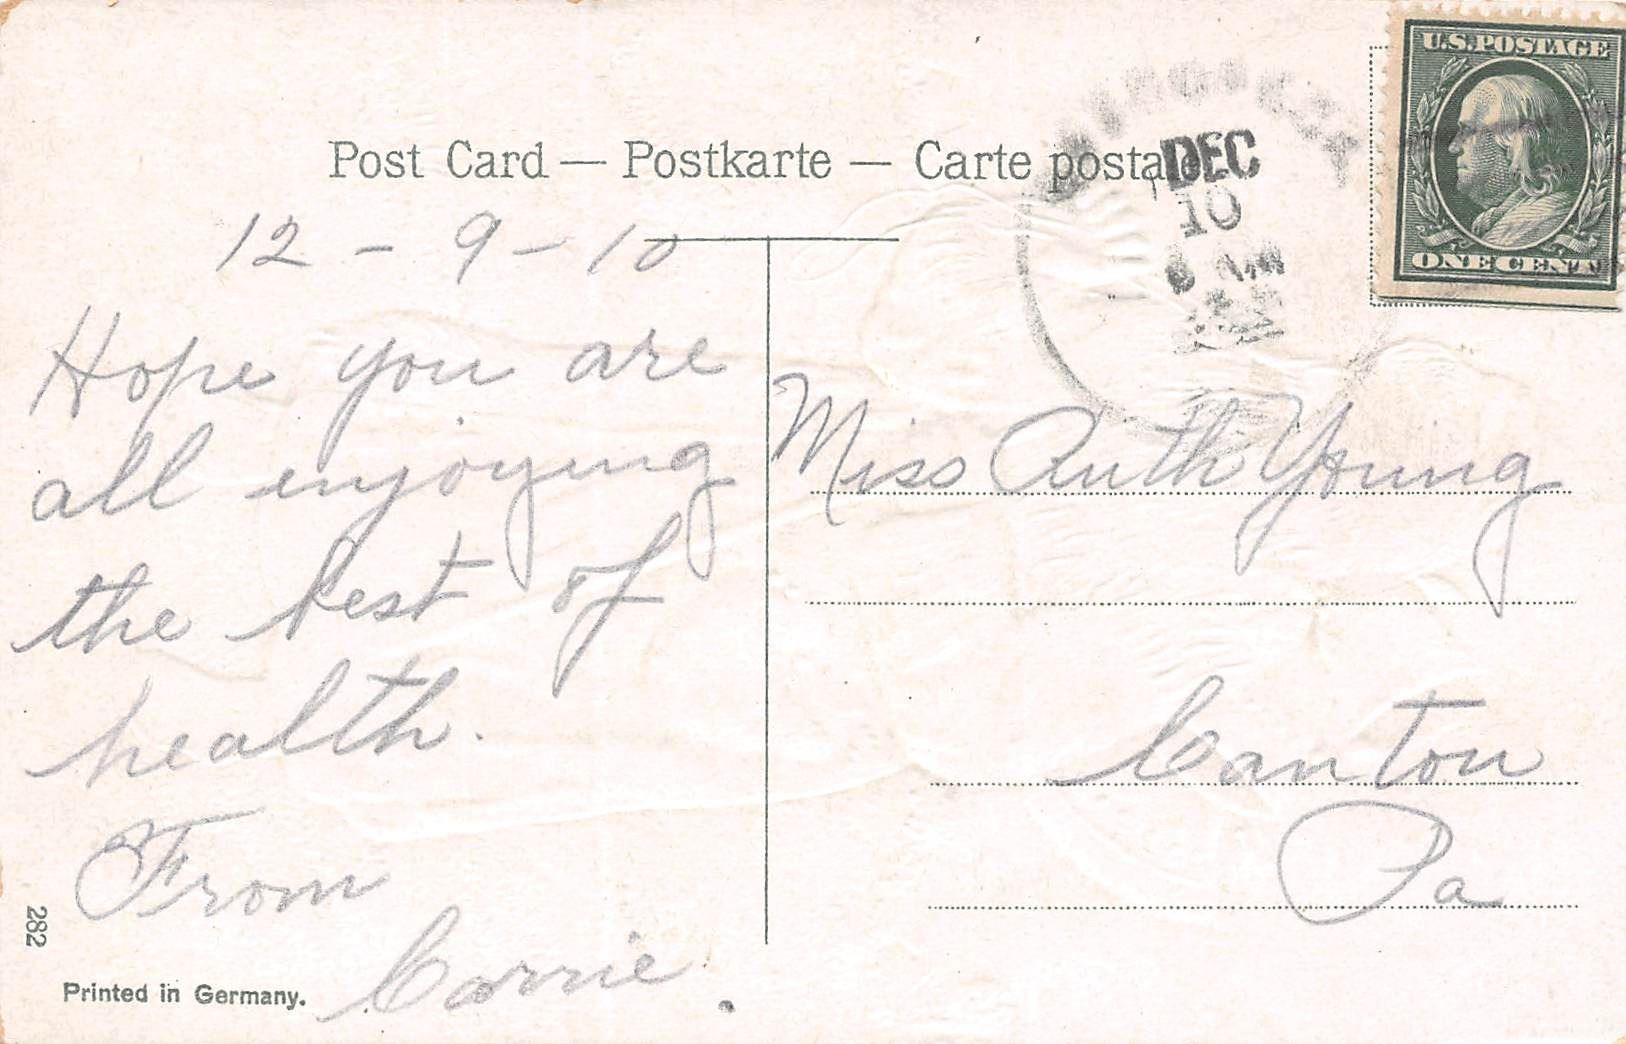 U.S. POSTAGE
ONE CENT
Post Card — Postkarte — Carte postale
DEC
10
12 - 9 - 10
Hope you are
all enjoying
the best of
health.
From
Carrie.
Miss Ruth Young
Canton
Pa
282
Printed in Germany.